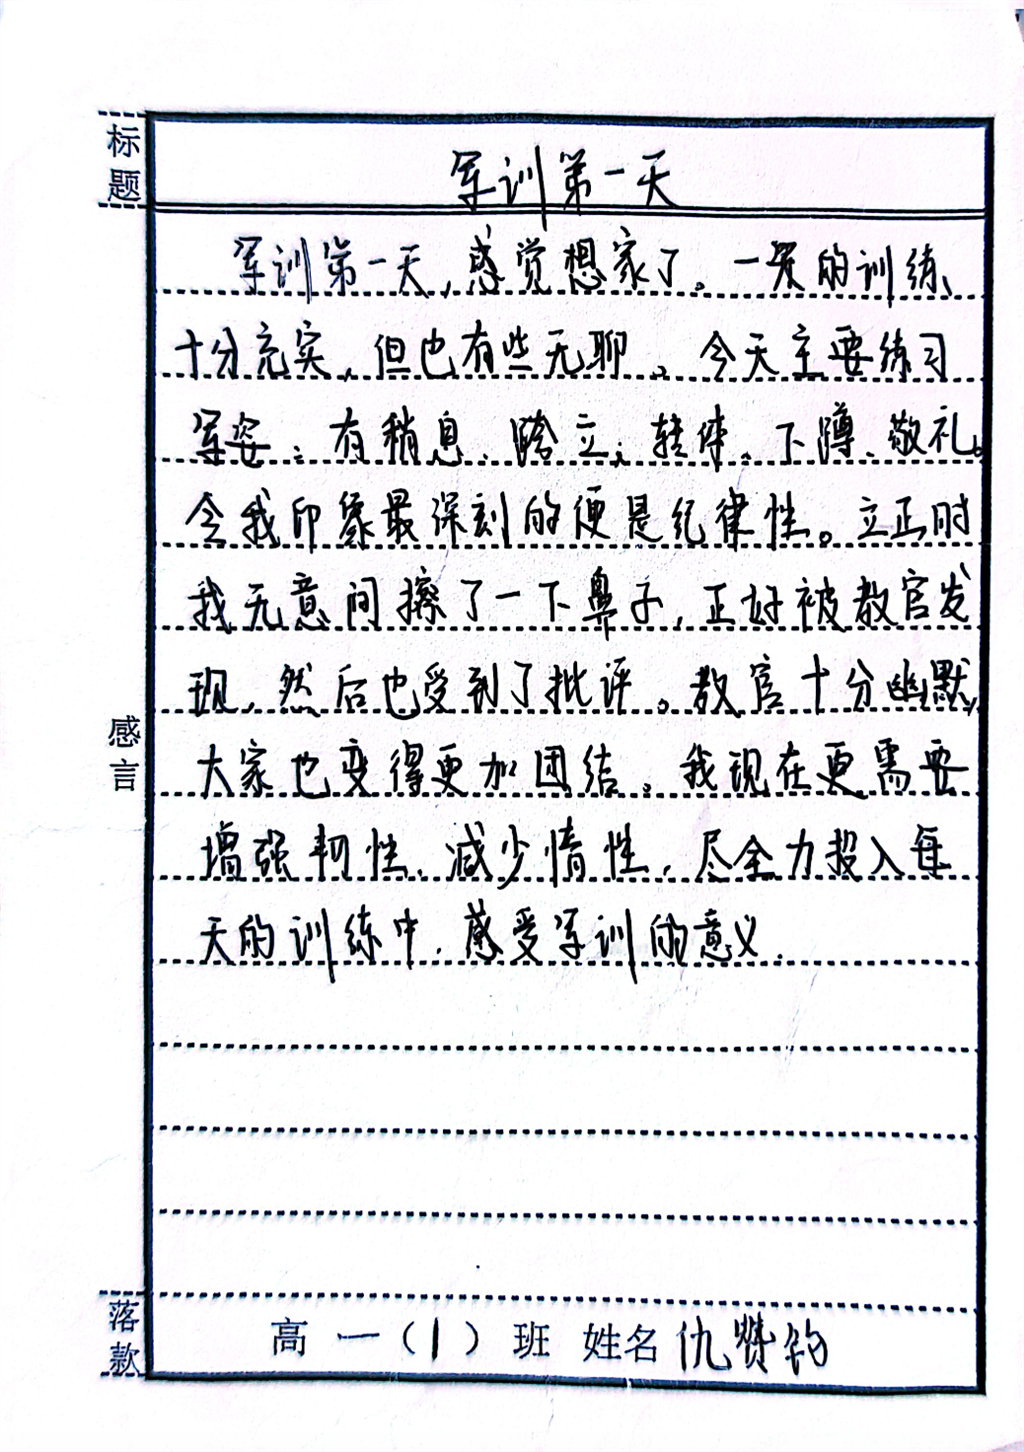 标题
军训第一天
军训第一天,感觉想家了。一天的训练
十分充实,但也有些无聊。今天主要练习
军姿:有稍息、跨立、转体、下蹲、敬礼。
令我印象最深刻的便是纪律性。立正时
我无意间擦了一下鼻子,正好被教官发
现,然后也受到了批评。教官十分幽默,
大家也变得更加团结。我现在更需要
增强韧性、减少惰性,尽全力投入每
天的训练中,感受军训的意义.
感言
落款
高一(1)班 姓名仇赞钧